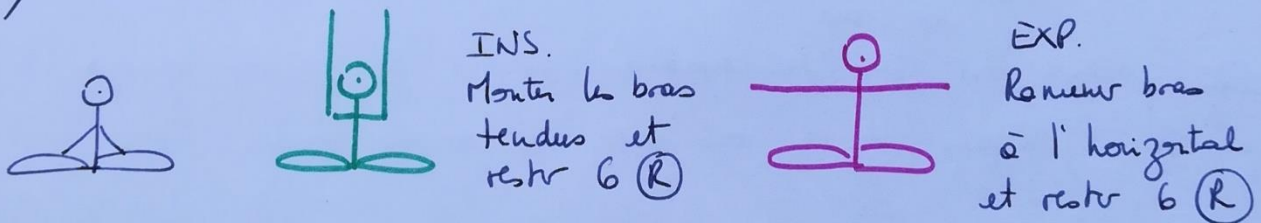 INS.
Monter les bras
tendus et
rester 6 (R)
EXP.
Ramener bras
à l'horizontal
et rester 6 (R)